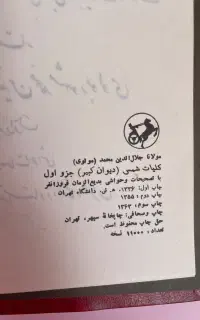 مولانا جلال‌الدین محمد (مولوی)
کلیات شمس (دیوان کبیر) جزو اول
با تصحیحات وحواشی بدیع‌الزمان فروزانفر
چاپ اول: ۱۳۳۶، ه. ق. دانشگاه تهران
چاپ دوم: ۱۳۵۵
چاپ سوم: ۱۳۶۳
چاپ وصحافی: چاپخانهٔ سپهر، تهران
حق چاپ محفوظ است.
تعداد: ۱۱۰۰۰ نسخه